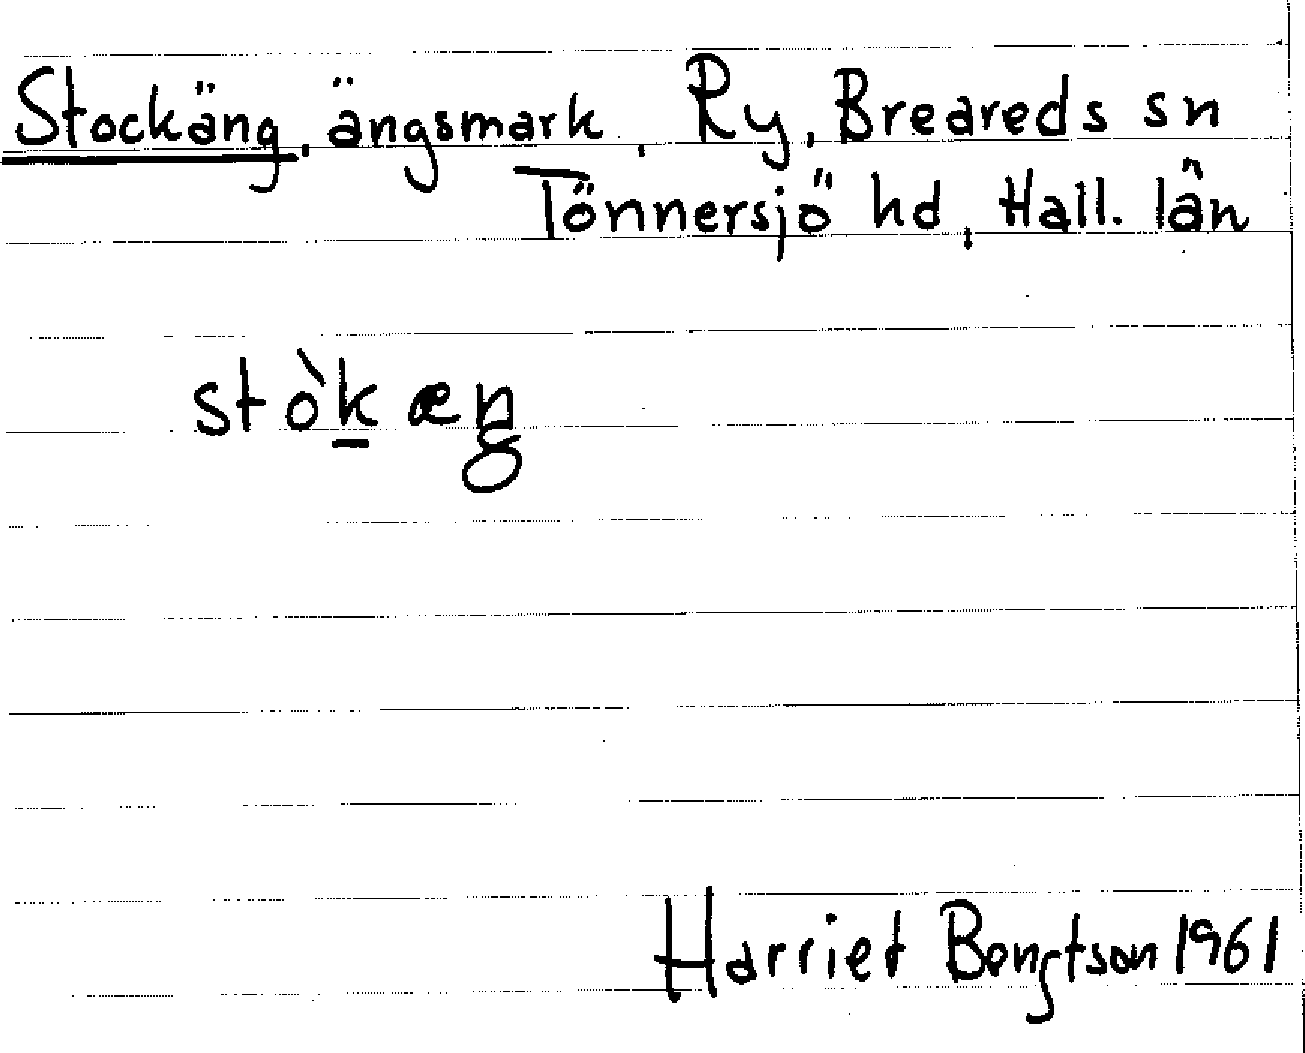 Stockäng, ängsmark. Ry, Breareds sn
Tönnersjö hd, Hall. län
stòk̲æŋ
Harriet Bengtson 1961